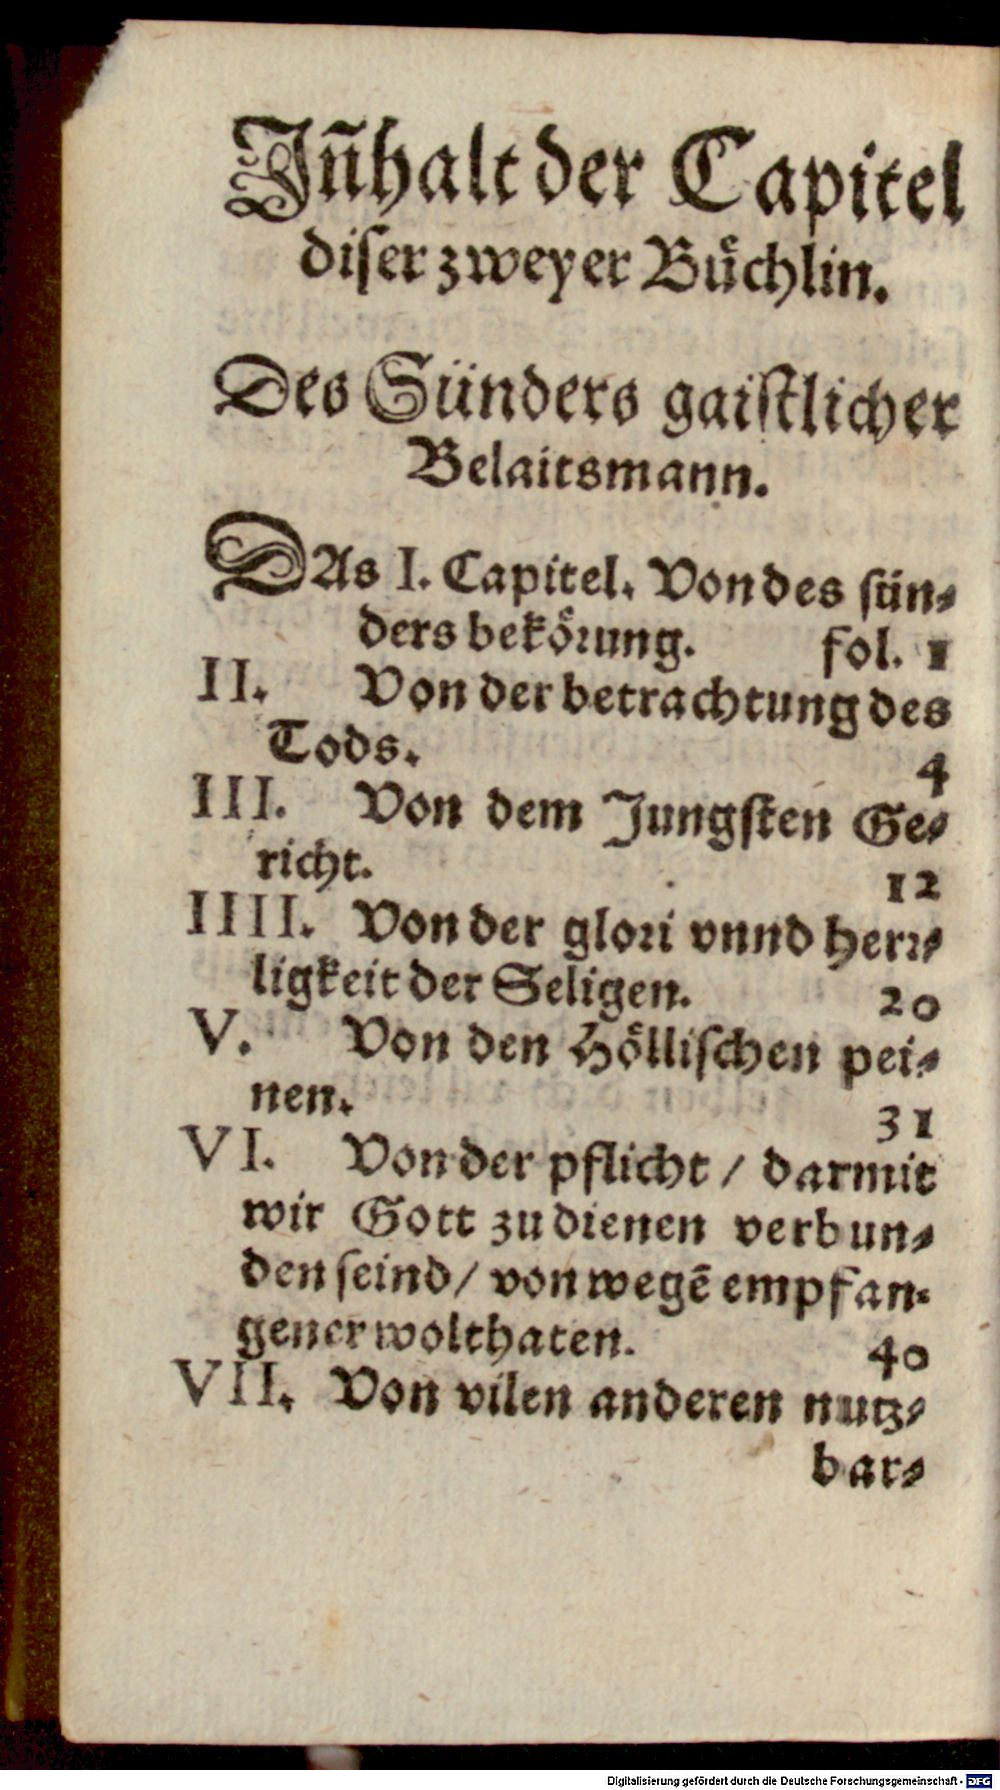 Jñhalt der Capitel
diſer zweyer Bůchlin.
Des Sünders gaiſtlicher
Belaitsmann.
DAs I. Capitel. Von des ſün⸗
ders bekörung. fol. 1
II. Von der betrachtung des
Tods. 4
III. Von dem Jungſten Ge⸗
richt. 12
IIII. Von der glori vnnd herr⸗
ligkeit der Seligen. 20
V. Von den Höllifchen pei⸗
nen. 31
VI. Von der pflicht / darmit
wir Gott zu dienen verbun⸗
den ſeind / von wegē empfan⸗
gener wolthaten. 40
VII. Von vilen anderen nutz⸗
bar⸗
Digitalisierung gefördert durch die Deutsche Forschungsgemeinschaft - DFG